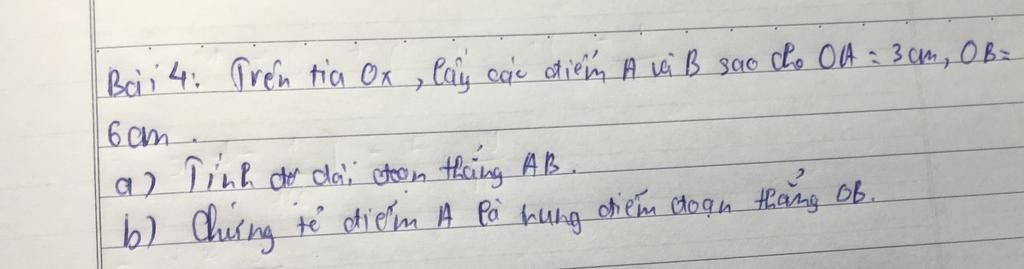 Bài 4: Trên tia Ox, lấy các điểm A và B sao cho OA = 3cm, OB =
6cm.
a) Tính độ dài đoạn thẳng AB.
b) Chứng tỏ điểm A là trung điểm đoạn thẳng OB.